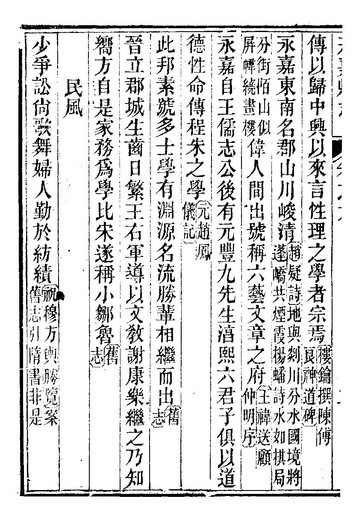 傳以歸中興以來言性理之學者宗焉樓鑰撰陳傅良神道碑
永嘉東南名郡山川峻清趙嶷詩地與剡川分水國境將蓬嶠共煙霞楊蟠詩水如棋局分街陌山似屏幃繞畫樓偉人間出號稱六藝文章之府王禕送顧仲明序
永嘉自王儒志公後有元豐九先生淳熙六君子俱以道德性命傳程朱之學元趙鳳儀記
此邦素號多士學有淵源名流勝輩相繼而出舊志
晉立郡城生齒日繁王右軍導以文敎謝康樂繼之乃知嚮方自是家務爲學比宋遂稱小鄒魯舊志
民風
少爭訟尙歌舞婦人勤於紡績祝穆方輿勝覽案舊志引隋書非是